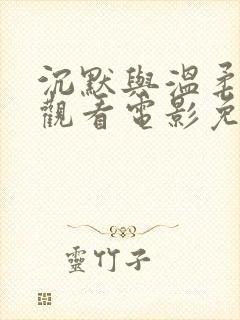 沉默與溫柔
觀看電影免
靈竹子